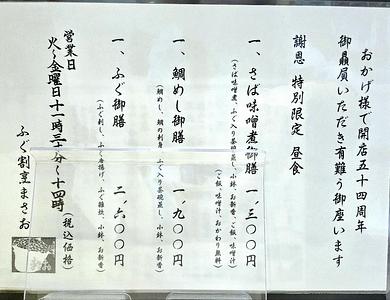 おかげ様で開店五十四周年
御贔屓いただき有難う御座います
謝恩 特別限定 昼食
一、さば味噌煮御膳 一、三〇〇円
(さば味噌煮、ふぐ入り茶碗蒸し、小鉢、お新香、ご飯、味噌汁)
(ご飯、味噌汁、おかわり無料)
一、鯛めし御膳 一、九〇〇円
(鯛めし、鯛の刺身、ふぐ入り茶碗蒸し、小鉢、お新香)
一、ふぐ御膳 二、六〇〇円
(ふぐ刺し、ふぐ唐揚げ、ふぐ雑炊、小鉢、お新香)
営業日
火~金曜日十一時三十分~十四時 (税込価格)
ふぐ割烹まさお